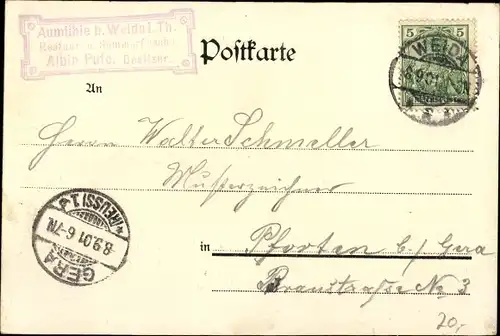 Aumühle b. Weida i. Th.
Restaur. u. Sommerfrische
Albin Pufe, Besitzer.
Postkarte
5 5
WEIDA
8.9.01
An
Herrn Walter Schmeller
Musterzeichner
in Pforten b/ Gera
Braustraße No 3
GERA
8.9.01 6-7N.
(REUSS) 1
20,-